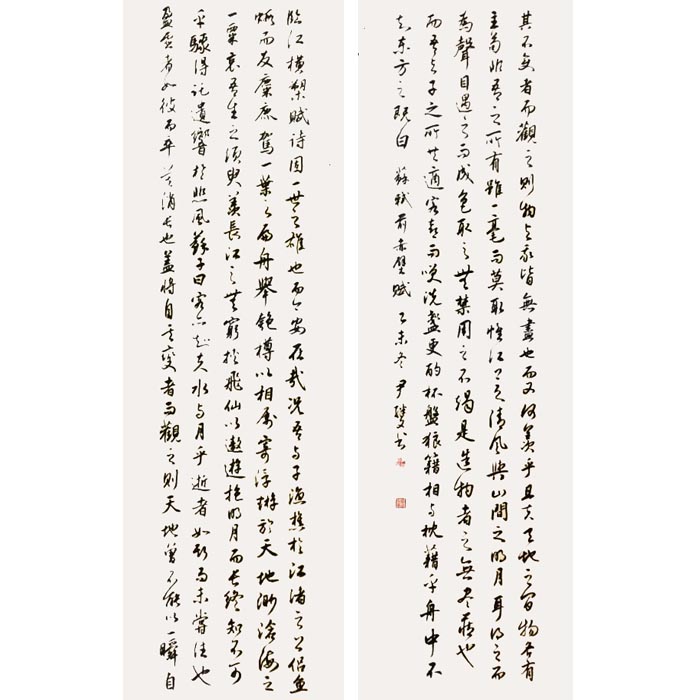 臨江橫槊賦詩固一世之雄也而今安在哉況吾與子漁樵於江渚之上侶魚
蝦而友麋鹿駕一葉之扁舟舉匏樽以相屬寄浮蝣於天地渺滄海之
一粟哀吾生之須臾羨長江之無窮挾飛仙以遨遊抱明月而長終知不可
乎驟得託遺響於悲風蘇子曰客亦知夫水與月乎逝者如斯而未嘗往也
盈虛者如彼而卒莫消長也蓋將自其變者而觀之則天地曾不能以一瞬自
其不變者而觀之則物與我皆無盡也而又何羨乎且夫天地之間物各有
主苟非吾之所有雖一毫而莫取惟江上之清風與山間之明月耳得之而
為聲目遇之而成色取之無禁用之不竭是造物者之無盡藏也
而吾與子之所共適客喜而笑洗盞更酌杯盤狼籍相與枕藉乎舟中不
知東方之既白 蘇軾前赤壁賦 乙未冬 尹 書